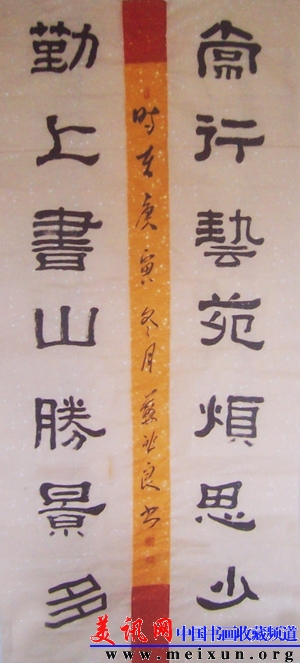 常行藝苑煩思少
時在庚寅冬月
勤上書山勝景多
美讯网 中国书画收藏频道
www.meixun.org